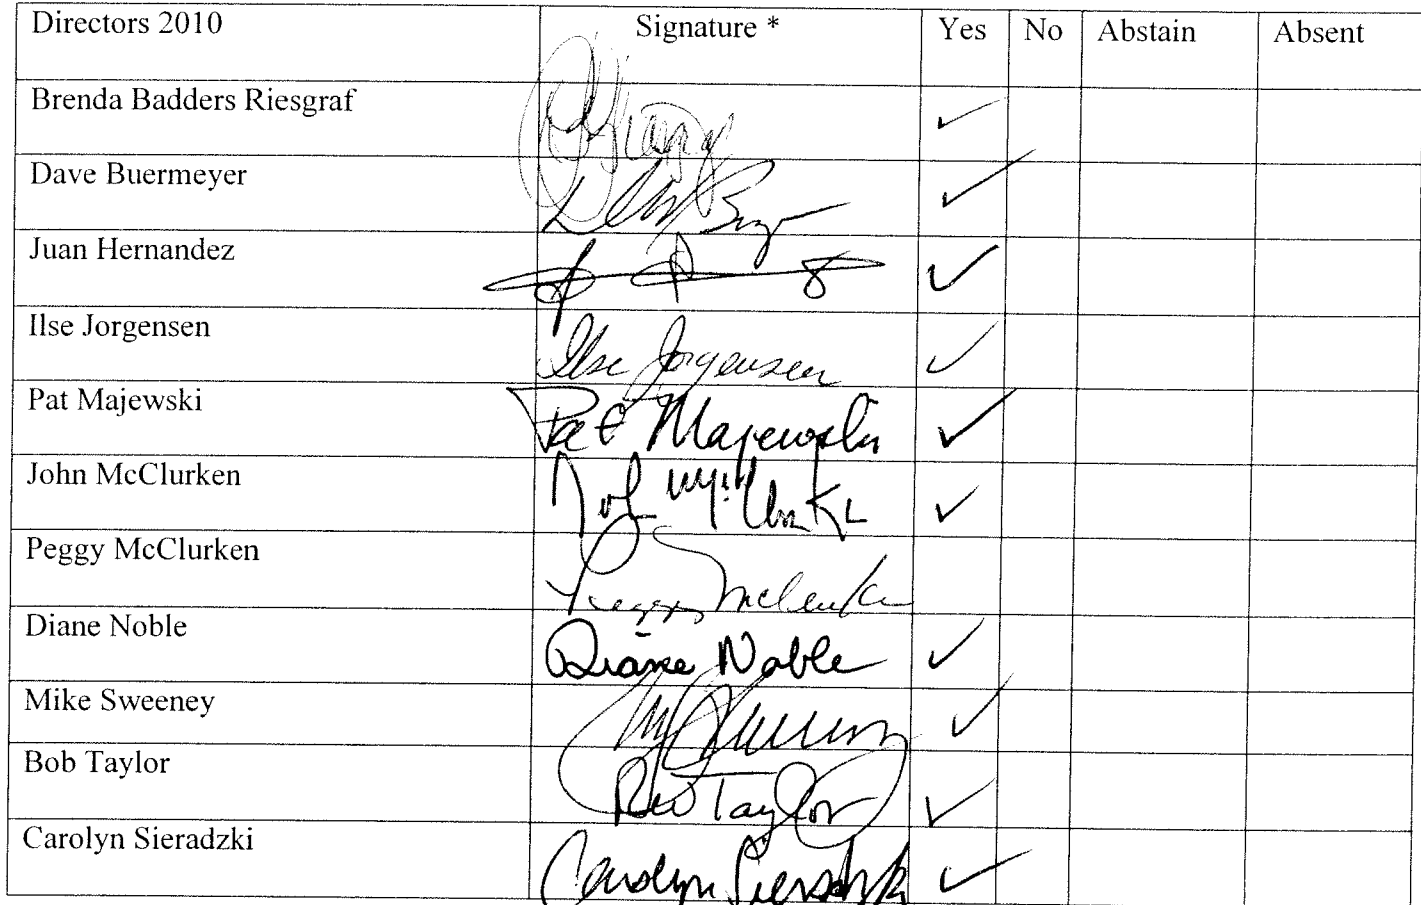 Directors 2010 Signature * Yes No Abstain Absent
Brenda Badders Riesgraf ✓
Dave Buermeyer ✓
Juan Hernandez ✓
Ilse Jorgensen Ilse Jorgensen ✓
Pat Majewski Pat Majewski ✓
John McClurken ✓
Peggy McClurken Peggy McClurken
Diane Noble Diane Noble ✓
Mike Sweeney ✓
Bob Taylor Taylor ✓
Carolyn Sieradzki Carolyn Sieradzki ✓